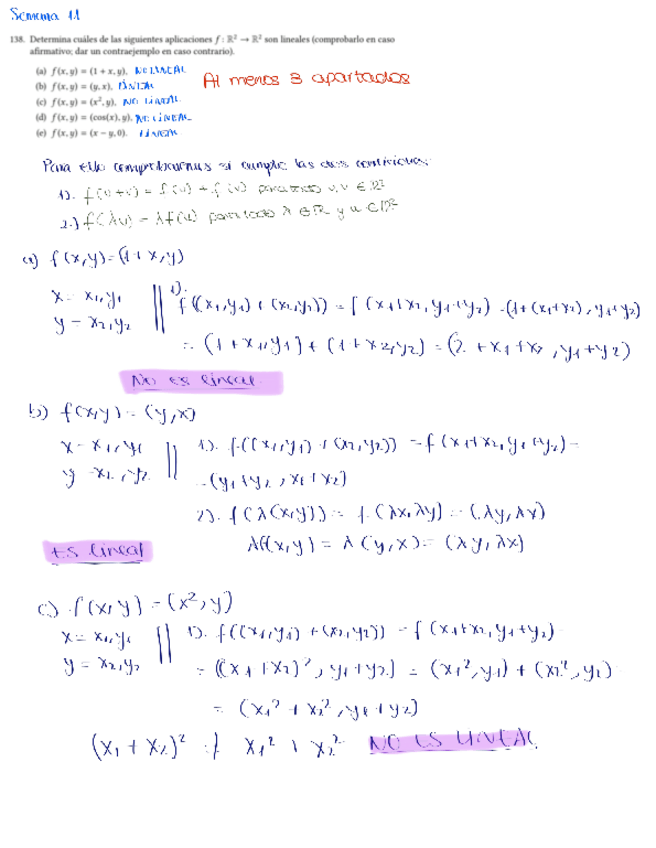 Semana 11
138. Determina cuáles de las siguientes aplicaciones f : ℝ² → ℝ² son lineales (comprobarlo en caso
afirmativo; dar un contraejemplo en caso contrario).
(a) f(x, y) = (1 + x, y). NO LINEAL
(b) f(x, y) = (y, x). LINEAL
(c) f(x, y) = (x², y). NO LINEAL
(d) f(x, y) = (cos(x), y). NO LINEAL
(e) f(x, y) = (x − y, 0). LINEAL
Al menos 3 apartados
Para ello comprobaremos si cumple las dos condiciones:
1). f(u+v) = f(u) + f(v) para todo u, v ∈ ℝ²
2.) f(λu) = λf(u) para todo λ ∈ ℝ y u ∈ ℝ²
a) f(x,y) = (1 + x, y)
x = x₁, y₁
y = x₂, y₂
1). f((x₁, y₁) + (x₂, y₂)) = f(x₁+x₂, y₁+y₂) = (1+(x₁+x₂), y₁+y₂)
= (1 + x₁, y₁) + (1 + x₂, y₂) = (2 + x₁ + x₂, y₁ + y₂)
No es lineal.
b) f(x,y) = (y, x)
x = x₁, y₁
y = x₂, y₂
1). f((x₁, y₁) + (x₂, y₂)) = f(x₁+x₂, y₁+y₂) =
= (y₁+y₂, x₁+x₂)
2). f(λ(x,y)) = f(λx, λy) = (λy, λx)
λf(x,y) = λ(y, x) = (λy, λx)
Es lineal
c) f(x,y) = (x², y)
x = x₁, y₁
y = x₂, y₂
1). f((x₁, y₁) + (x₂, y₂)) = f(x₁+x₂, y₁+y₂) =
= ((x₁+x₂)², y₁+y₂) = (x₁², y₁) + (x₂², y₂)
= (x₁² + x₂², y₁ + y₂)
(x₁ + x₂)² ≠ x₁² + x₂² NO ES LINEAL